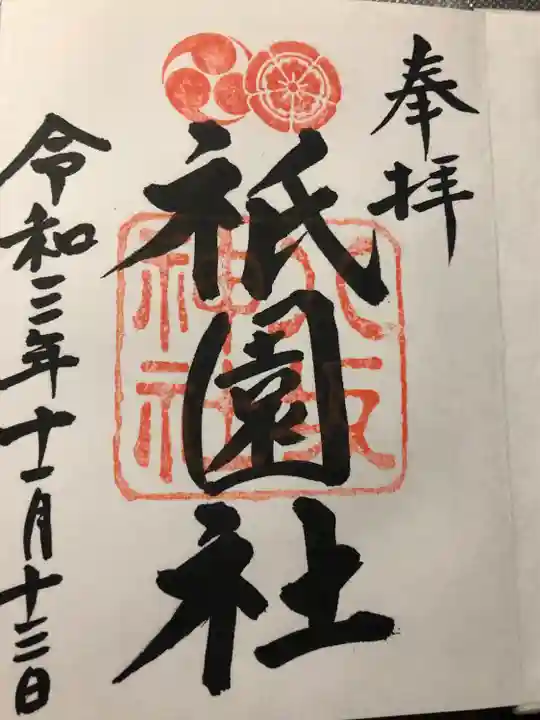 奉拝
祇園社
八坂神社
令和二年十一月十三日